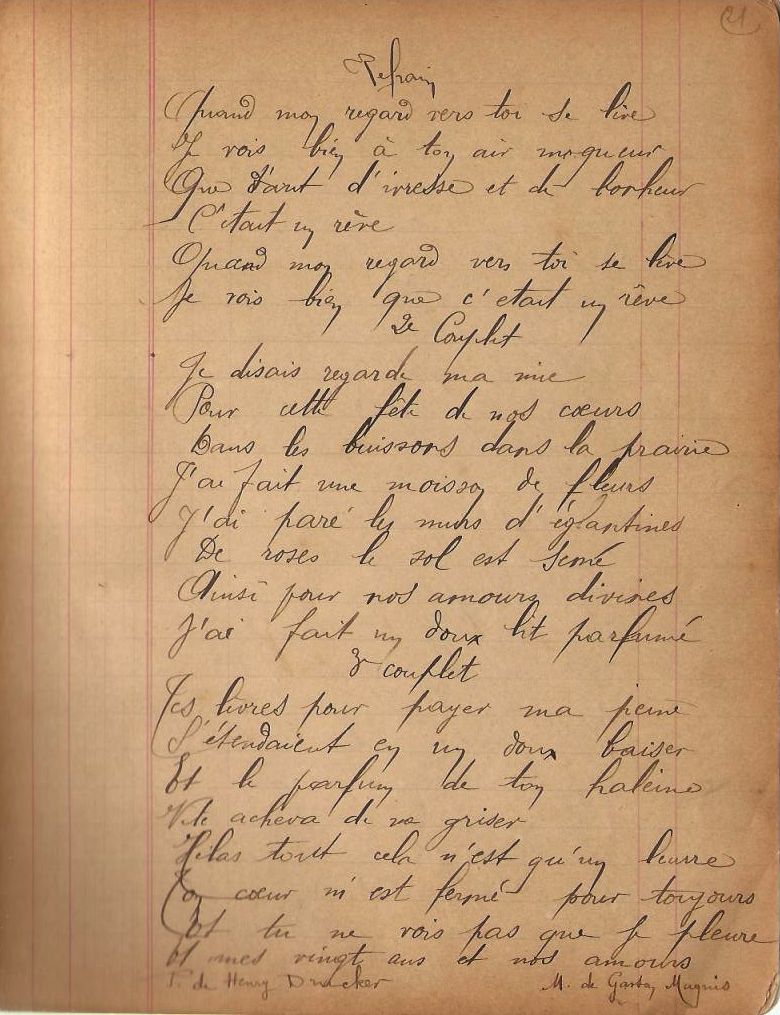 21
Refrain
Quand mon regard vers toi se lève
Je vois bien à ton air moqueur
Que d'aut d'ivresse et de bonheur
C'était un rêve
Quand mon regard vers toi se lève
Je vois bien que c'etait un rêve
2e Couplet
Je disais regarde ma mie
Pour cette fête de nos cœurs
Dans les buissons dans la prairie
J'ai fait une moisson de fleurs
J'ai paré les murs d'églantines
De roses le sol est semé
Ainsi pour nos amours divines
J'ai fait un doux lit parfumé
3e couplet
Tes lèvres pour payer ma peine
S'étendaient en un doux baiser
Et le parfum de ton haleine
acheva de me griser
Hélas tout cela n'est qu'un leurre
Ton cœur m'est fermé pour toujours
Et tu ne vois pas que je pleure
Et mes vingt ans et nos amours
P. de Henry Drucker M. de Gaston Magnis